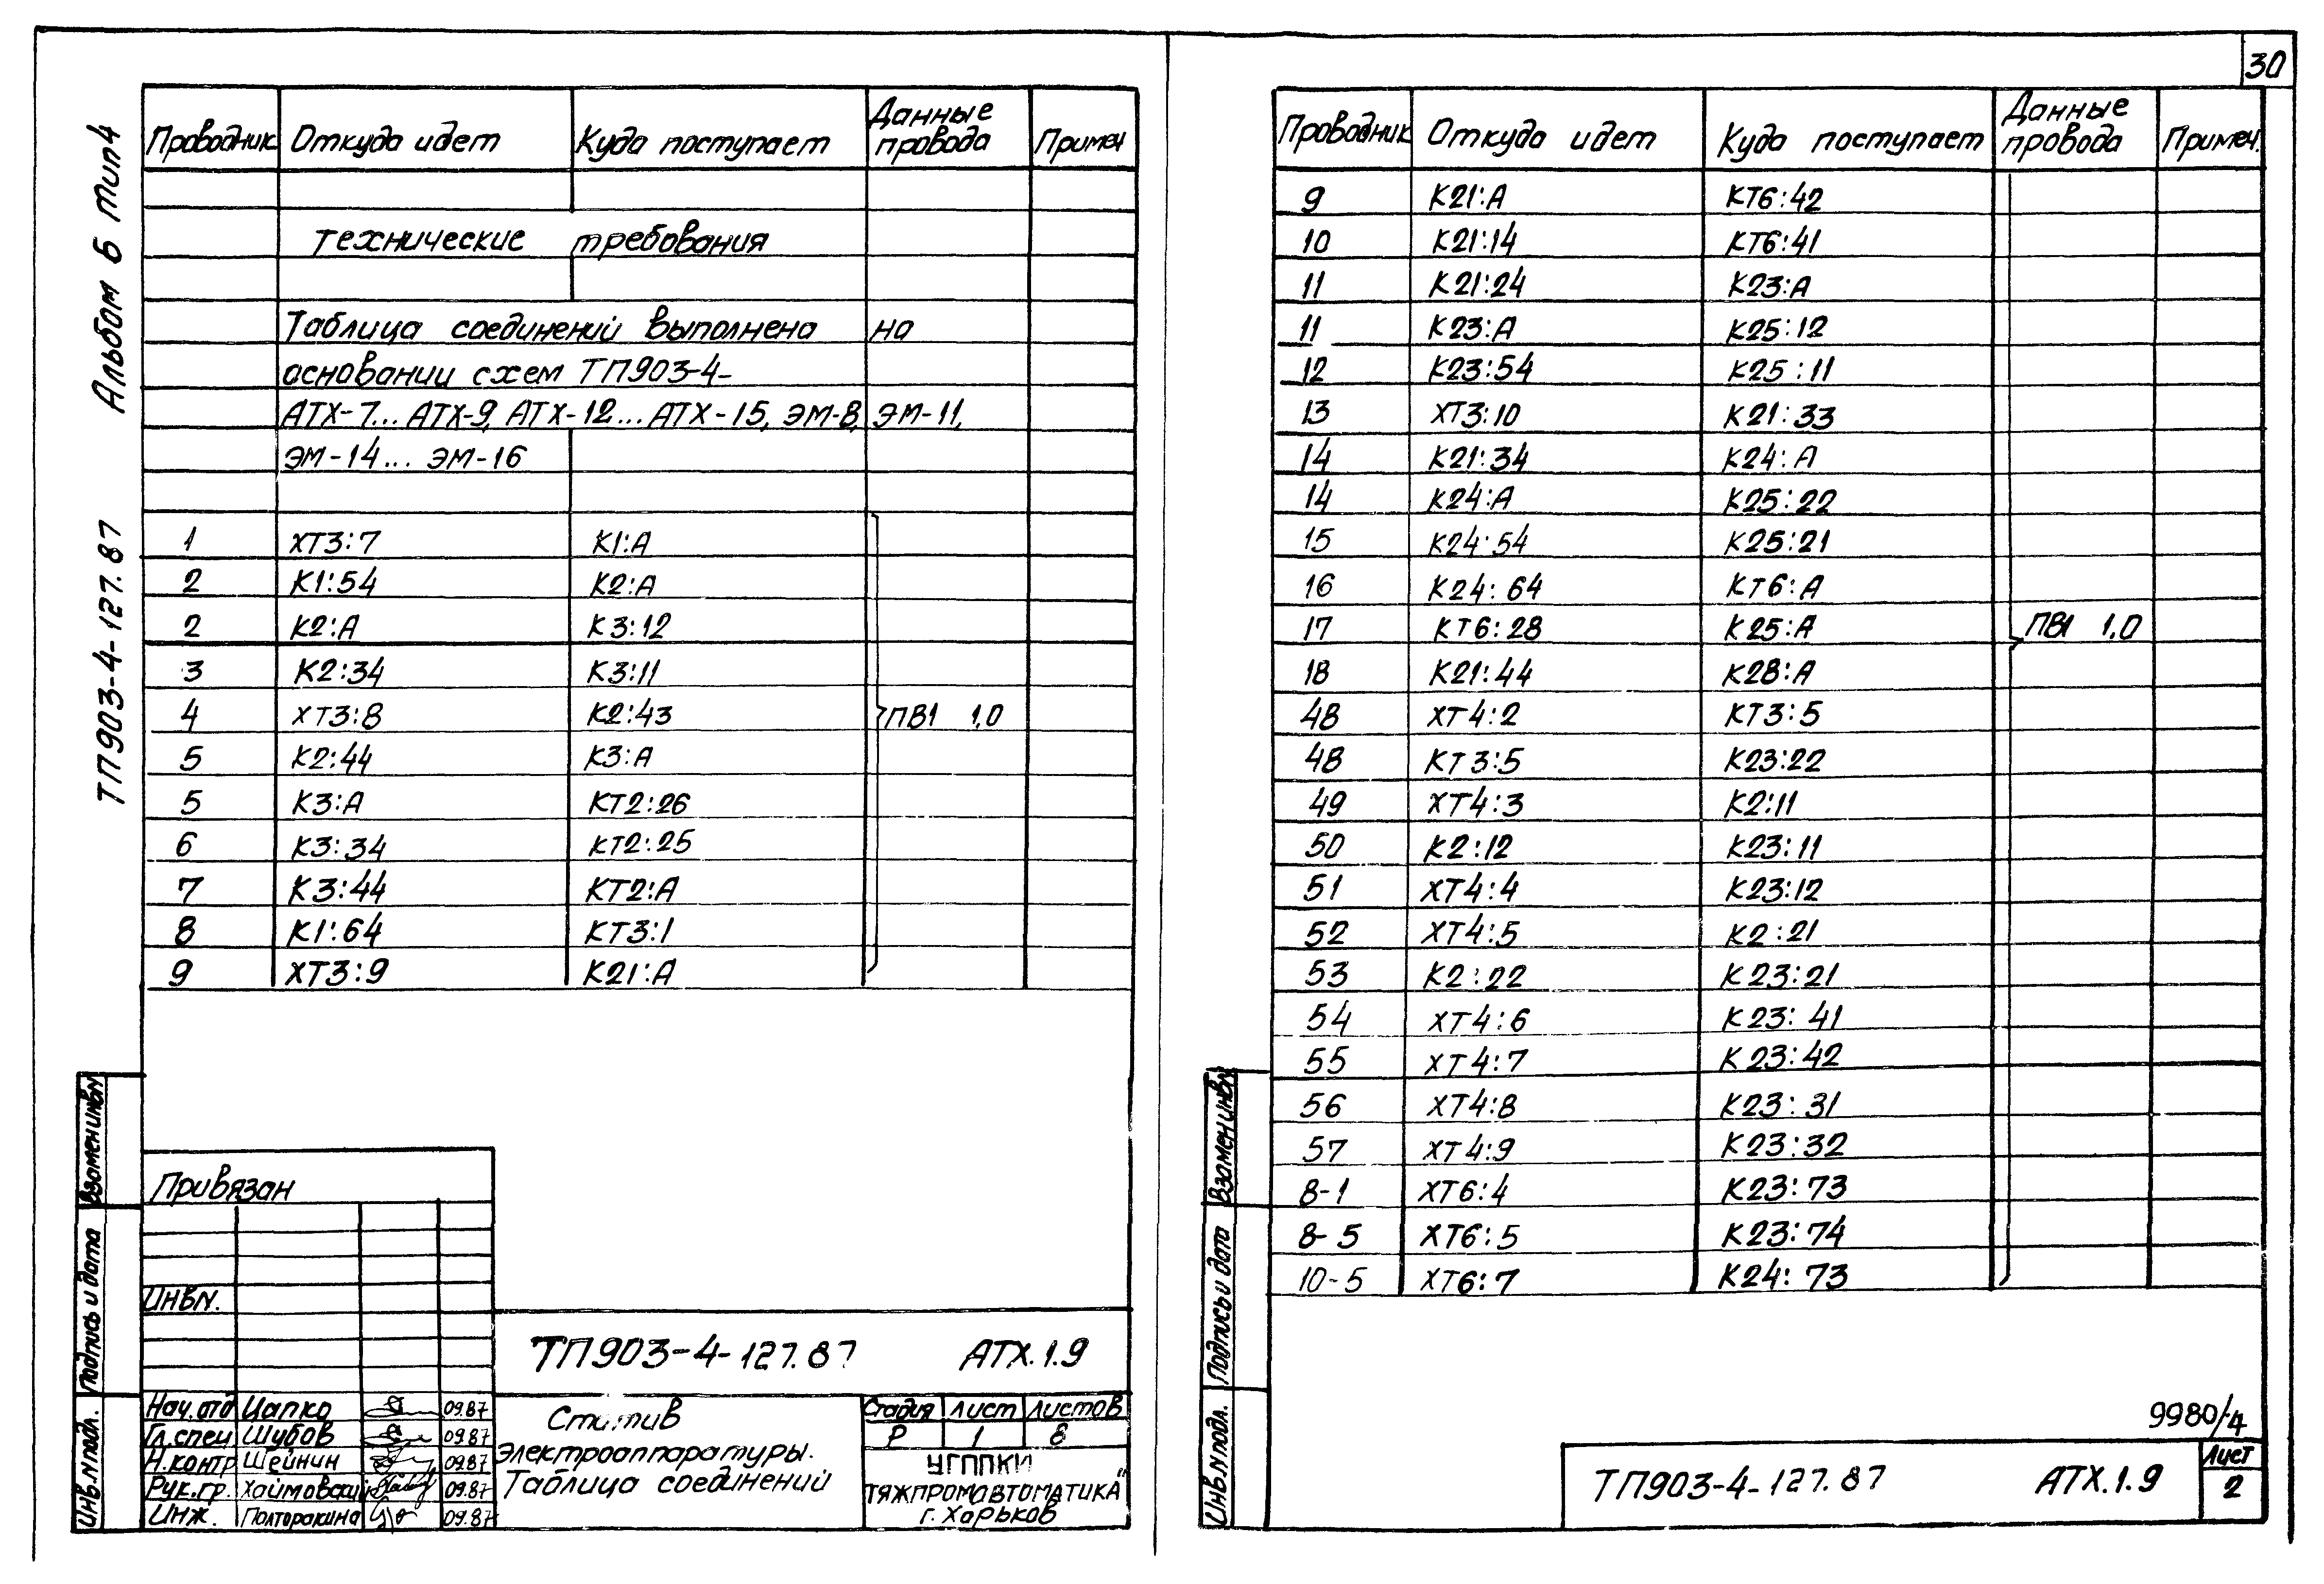 30
Альбом 5 тип 4
ТП903-4-127.87
Проводник Откуда идет Куда поступает Данные провода Примеч
технические требования
Таблица соединений выполнена на
основании схем ТП903-4-
АТХ-7... АТХ-9, АТХ-12...АТХ-15, ЭМ-8, ЭМ-11,
ЭМ-14... ЭМ-16
1 ХТ3:7 К1:А
2 К1:54 К2:А
2 К2:А К3:12
3 К2:34 К3:11
4 ХТ3:8 К2:43 ПВ1 1,0
5 К2:44 К3:А
5 К3:А КТ2:26
6 К3:34 КТ2:25
7 К3:44 КТ2:А
8 К1:64 КТ3:1
9 ХТ3:9 К21:А
Взамен инв№
Подпись и дата
Инв.№ подл.
Привязан
Инв№.
ТП903-4-127.87 АТХ.1.9
Нач.отд Цапко 09.87
Гл.спец Шубов 09.87
Н.контр Шейнин 09.87
Рук.гр. Хаймовский 09.87
Инж. Полторакина 09.87
Статив
электроаппаратуры.
Таблица соединений
Стадия Лист Листов
Р 1 8
УГППКИ
ТЯЖПРОМАВТОМАТИКА"
г. Харьков
Проводник Откуда идет Куда поступает Данные провода Примеч.
9 К21:А КТ6:42
10 К21:14 КТ6:41
11 К21:24 К23:А
11 К23:А К25:12
12 К23:54 К25:11
13 ХТ3:10 К21:33
14 К21:34 К24:А
14 К24:А К25:22
15 К24:54 К25:21
16 К24:64 КТ6:А
17 КТ6:28 К25:А ПВ1 1,0
18 К21:44 К28:А
48 ХТ4:2 КТ3:5
48 КТ3:5 К23:22
49 ХТ4:3 К2:11
50 К2:12 К23:11
51 ХТ4:4 К23:12
52 ХТ4:5 К2:21
53 К2:22 К23:21
54 ХТ4:6 К23:41
55 ХТ4:7 К23:42
56 ХТ4:8 К23:31
57 ХТ4:9 К23:32
8-1 ХТ6:4 К23:73
8-5 ХТ6:5 К23:74
10-5 ХТ6:7 К24:73
Взамен инв№
Подпись и дата
Инв.№ подл.
9980/4
ТП903-4-127.87 АТХ.1.9
Лист
2